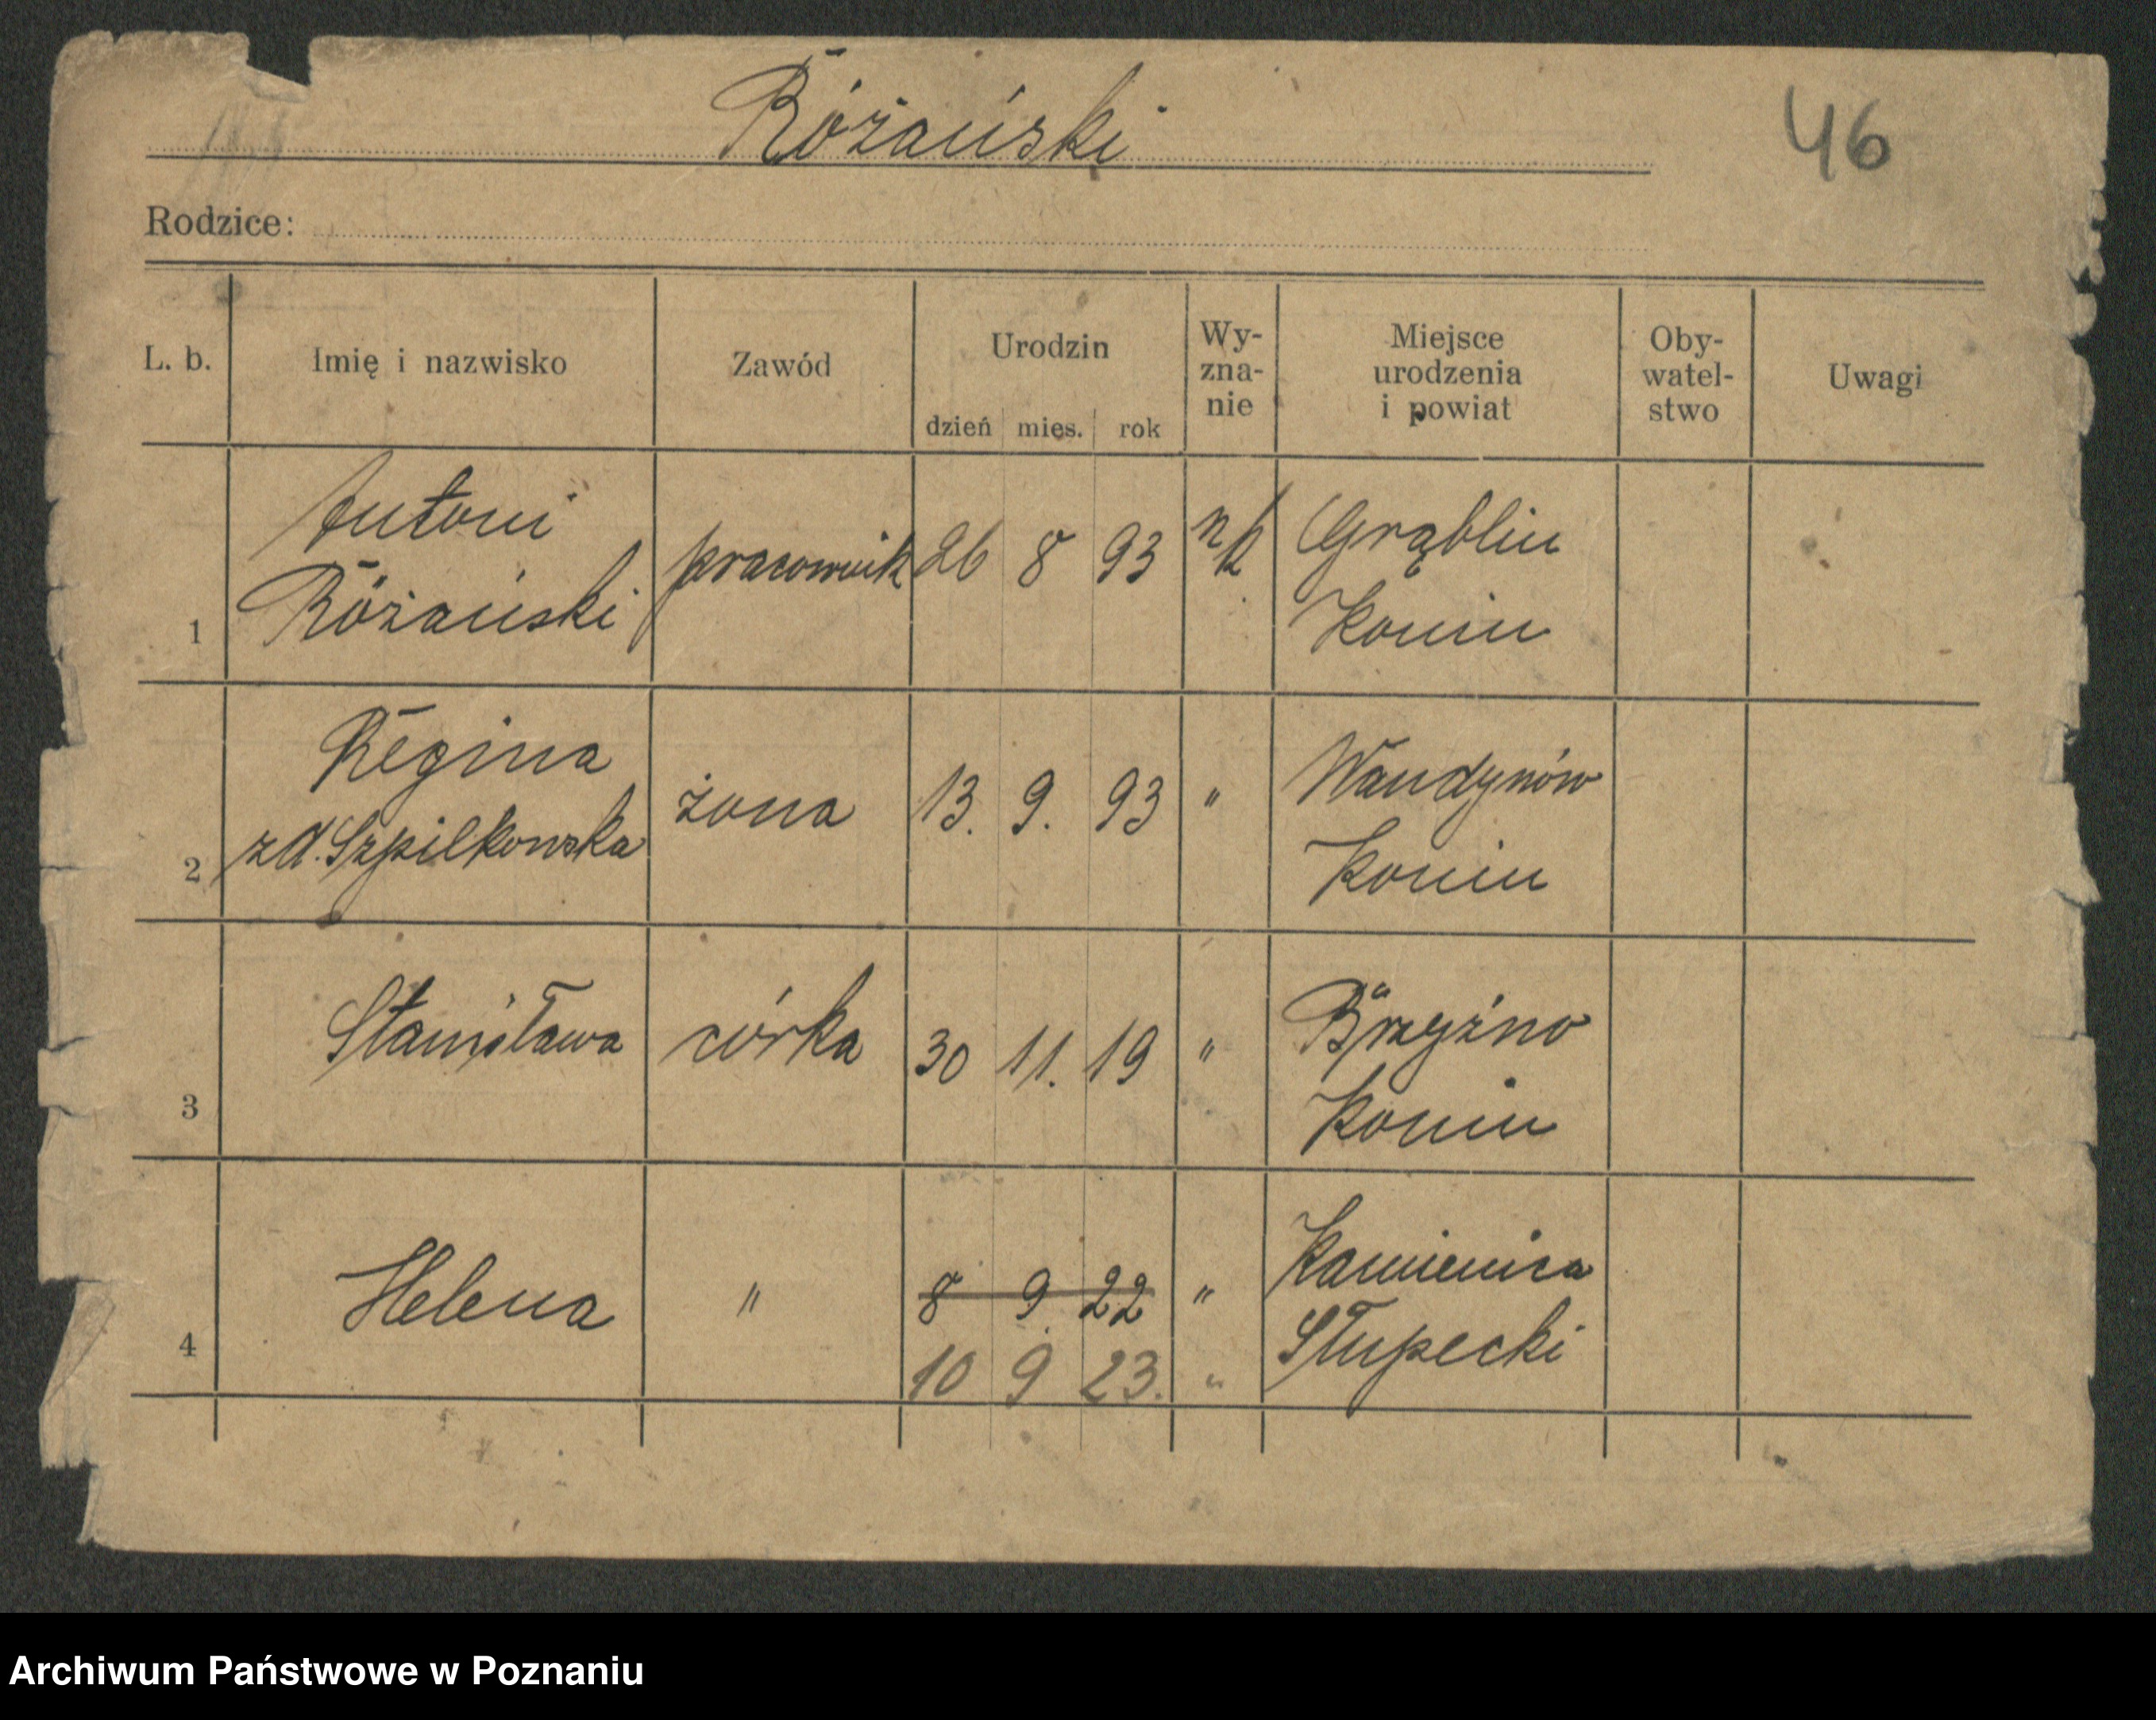 Różański
46
Rodzice:
L. b. Imię i nazwisko Zawód Urodzin dzień mies. rok Wy-zna-nie Miejsce urodzenia i powiat Oby-watel-stwo Uwagi
1 Antoni Różański pracownik 26 8 93 rk Grąblin Konin
2 Regina zd. Szpilkowska żona 13. 9. 93 " Wandynów Konin
3 Stanisława córka 30 11. 19 " Brzyźno Konin
4 Helena " 8 9 22 " Kamienica Słupecki
10 9 23. "
Archiwum Państwowe w Poznaniu